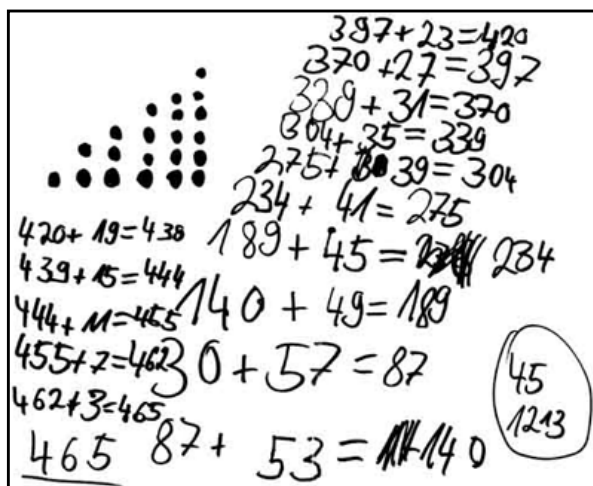 397+23=420
370+27=397
339+31=370
304+35=339
275+39=304
234+41=275
189+45=234
140+49=189
30+57=87
87+53=140
420+19=438
439+15=444
444+11=455
455+7=462
462+3=465
465
45
1213